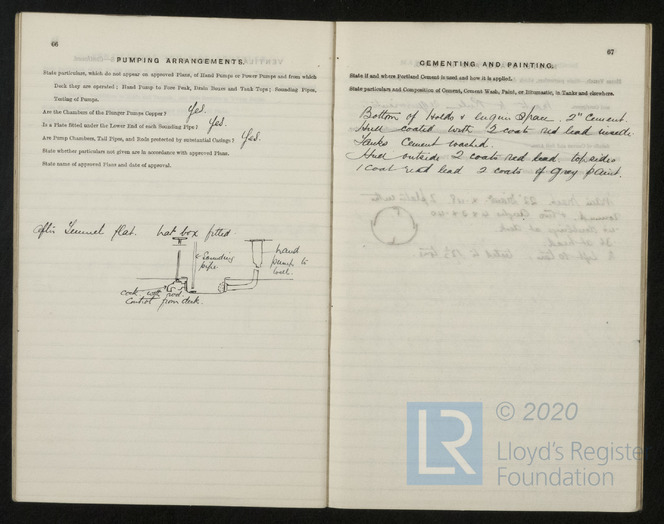 66
PUMPING ARRANGEMENTS.
State particulars, which do not appear on approved Plans, of Hand Pumps or Power Pumps and from which
Deck they are operated; Hand Pump to Fore Peak, Drain Boxes and Tank Tops; Sounding Pipes,
Testing of Pumps.
Are the Chambers of the Plunger Pumps Copper? Yes.
Is a Plate fitted under the Lower End of each Sounding Pipe? Yes.
Are Pump Chambers, Tail Pipes, and Rods protected by substantial Casings? Yes.
State whether particulars not given are in accordance with approved Plans.
State name of approved Plans and date of approval.
After Tunnel flat. hat box fitted
Sounding
pipe
hand
pump to
cock with rod.
Control from deck.
67
CEMENTING AND PAINTING.
State if and where Portland Cement is used and how it is applied.
State particulars and Composition of Cement, Cement Wash, Paint, or Bitumastic, in Tanks and elsewhere.
Bottom of Holds & Engine Space. 2" Cement.
Hull coated with 2 coats red lead inside
Tanks Cement washed.
Hull outside 2 coats red lead, top sides
1 Coat red lead 2 coats of Grey paint.
© 2020
LR
Lloyd's Register
Foundation